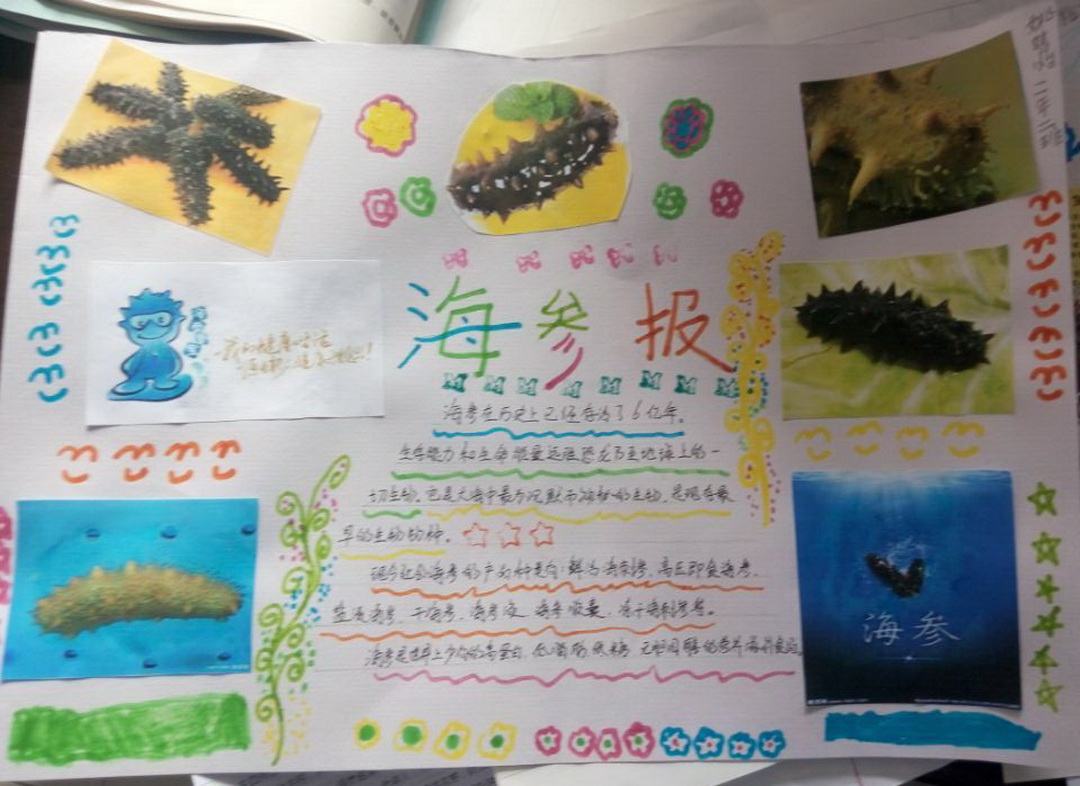 海参报
海参在历史上已经存活了6亿年。
生存能力和生命能量远胜恐龙乃至地球上的一
切生物。它是大海中最为沉默而神秘的生物,是现存最
早的生物物种。
现今社会海参的产品种类有:鲜活海刺参、高压即食海参、
盐渍海参、干海参、海参液、海参胶囊、冻干海刺参等。
海参是世界上少有的高蛋白、低脂肪、低糖、无胆固醇的营养海
海参